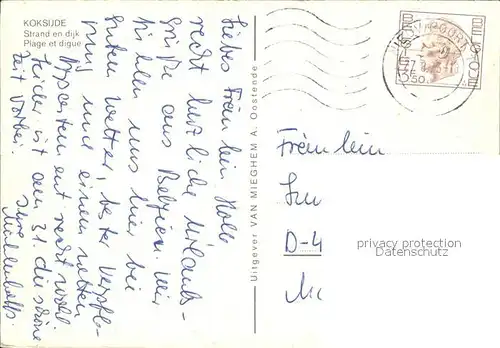 KOKSIJDE
Strand en dijk
Plage et digue
Liebes Fräulein Holl
recht herzliche Urlaub-
grüße aus Belgien. Wir
fühlen uns hier bei
gutem Wetter, bester Verpfle-
gung und einem netten
Appartement recht wohl.
Leider ist am 31. die schöne
Zeit vorbei.
Ihre
Uitgever VAN MIEGHEM A. Oostende
NIEUWPOORT
BELGIE BELGIQUE
Fräulein
D-4
privacy protection
Datenschutz